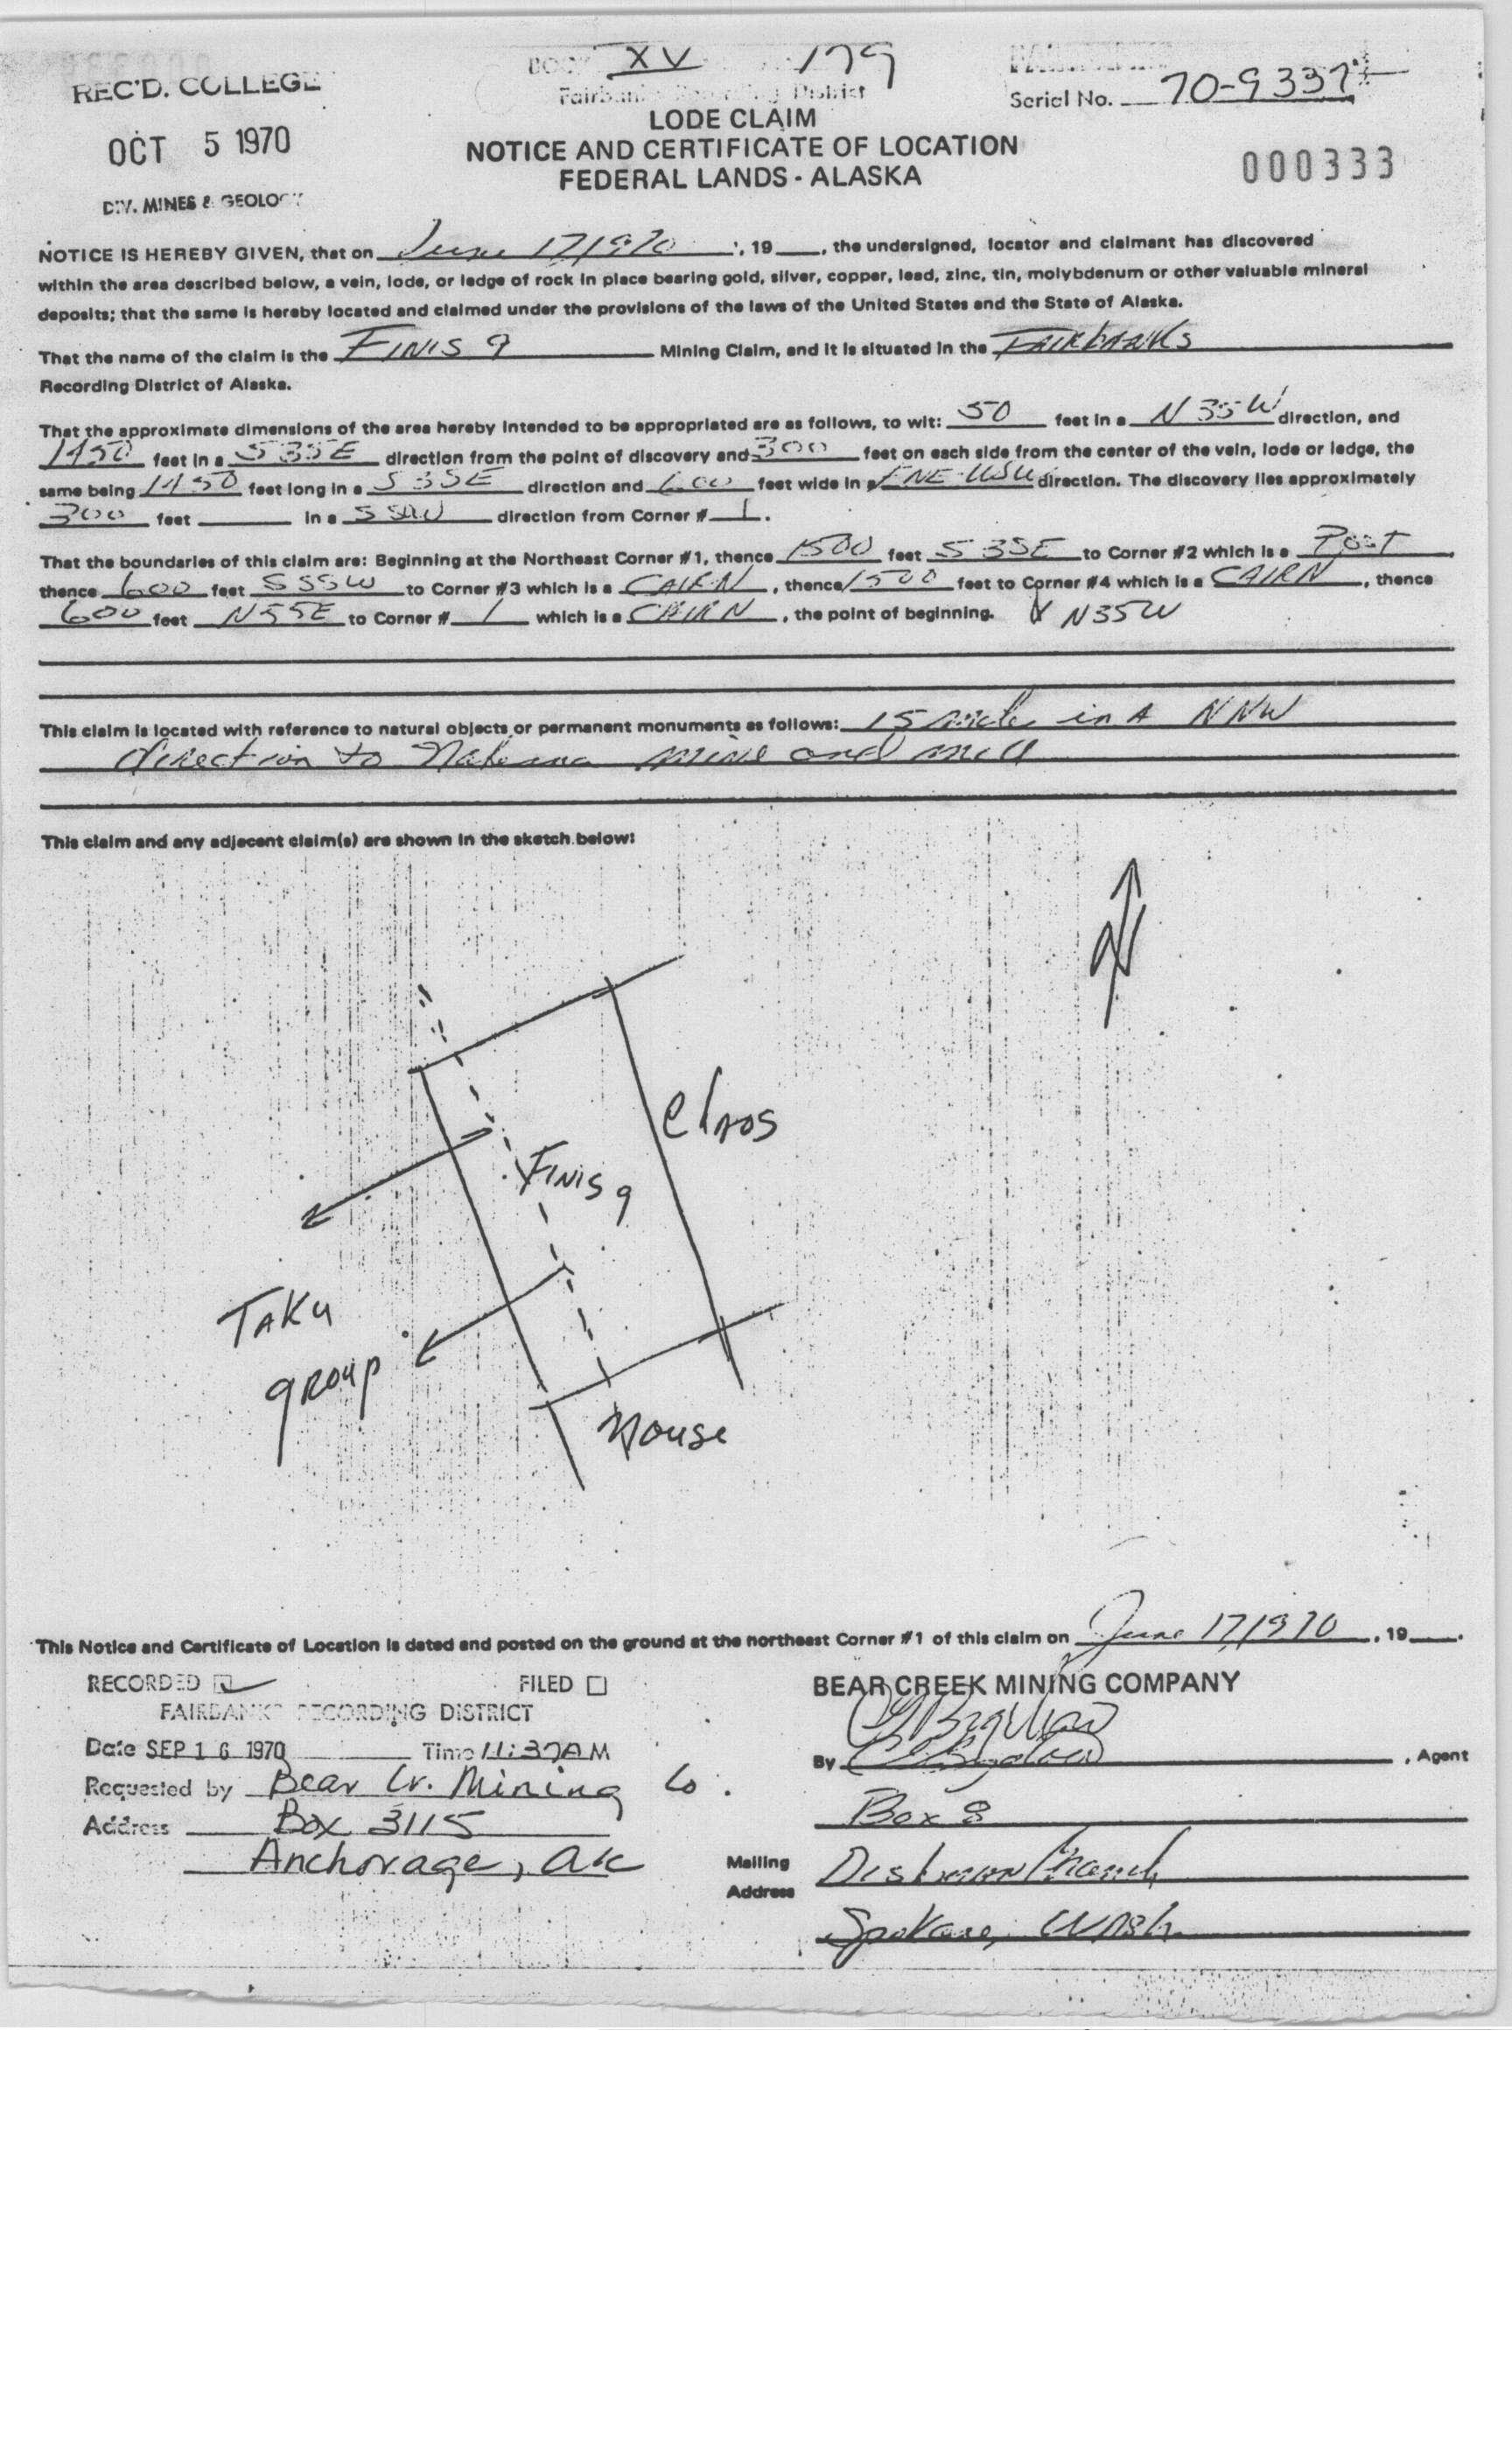 REC'D. COLLEGE
OCT 5 1970
DIV. MINES & GEOLOGY
BOOK XV 179
Fairbanks Recording District
Serial No. 70-9337
LODE CLAIM
NOTICE AND CERTIFICATE OF LOCATION
FEDERAL LANDS - ALASKA
000333
NOTICE IS HEREBY GIVEN, that on June 17/1970, 19__, the undersigned, locator and claimant has discovered
within the area described below, a vein, lode, or ledge of rock in place bearing gold, silver, copper, lead, zinc, tin, molybdenum or other valuable mineral
deposits; that the same is hereby located and claimed under the provisions of the laws of the United States and the State of Alaska.
That the name of the claim is the FINIS 9 Mining Claim, and it is situated in the FAIRBANKS
Recording District of Alaska.
That the approximate dimensions of the area hereby intended to be appropriated are as follows, to wit: 50 feet in a N 35 W direction, and
1450 feet in a S 35 E direction from the point of discovery and 300 feet on each side from the center of the vein, lode or ledge, the
same being 1450 feet long in a S 35 E direction and 600 feet wide in a ENE-WSW direction. The discovery lies approximately
300 feet in a direction from Corner # 1.
That the boundaries of this claim are: Beginning at the Northeast Corner #1, thence 1500 feet S 35 E to Corner #2 which is a Post,
thence 600 feet S 55 W to Corner #3 which is a CAIRN, thence 1500 feet to Corner #4 which is a CAIRN, thence
600 feet N 55 E to Corner # 1 which is a CAIRN, the point of beginning. N 35 W
This claim is located with reference to natural objects or permanent monuments as follows: 15 miles in A NNW
direction to Nabesna mine and mill
This claim and any adjacent claim(s) are shown in the sketch below:
N
Chaos
FINIS 9
TAKU
group
Mouse
This Notice and Certificate of Location is dated and posted on the ground at the northeast Corner #1 of this claim on June 17/1970, 19__.
RECORDED FILED
FAIRBANKS RECORDING DISTRICT
Date SEP 16 1970 Time 11:37 AM
Requested by Bear Cr. Mining Co.
Address Box 3115
Anchorage, AK
BEAR CREEK MINING COMPANY
By , Agent
Box 8
Mailing Address Dishman Branch
Spokane, WASh.